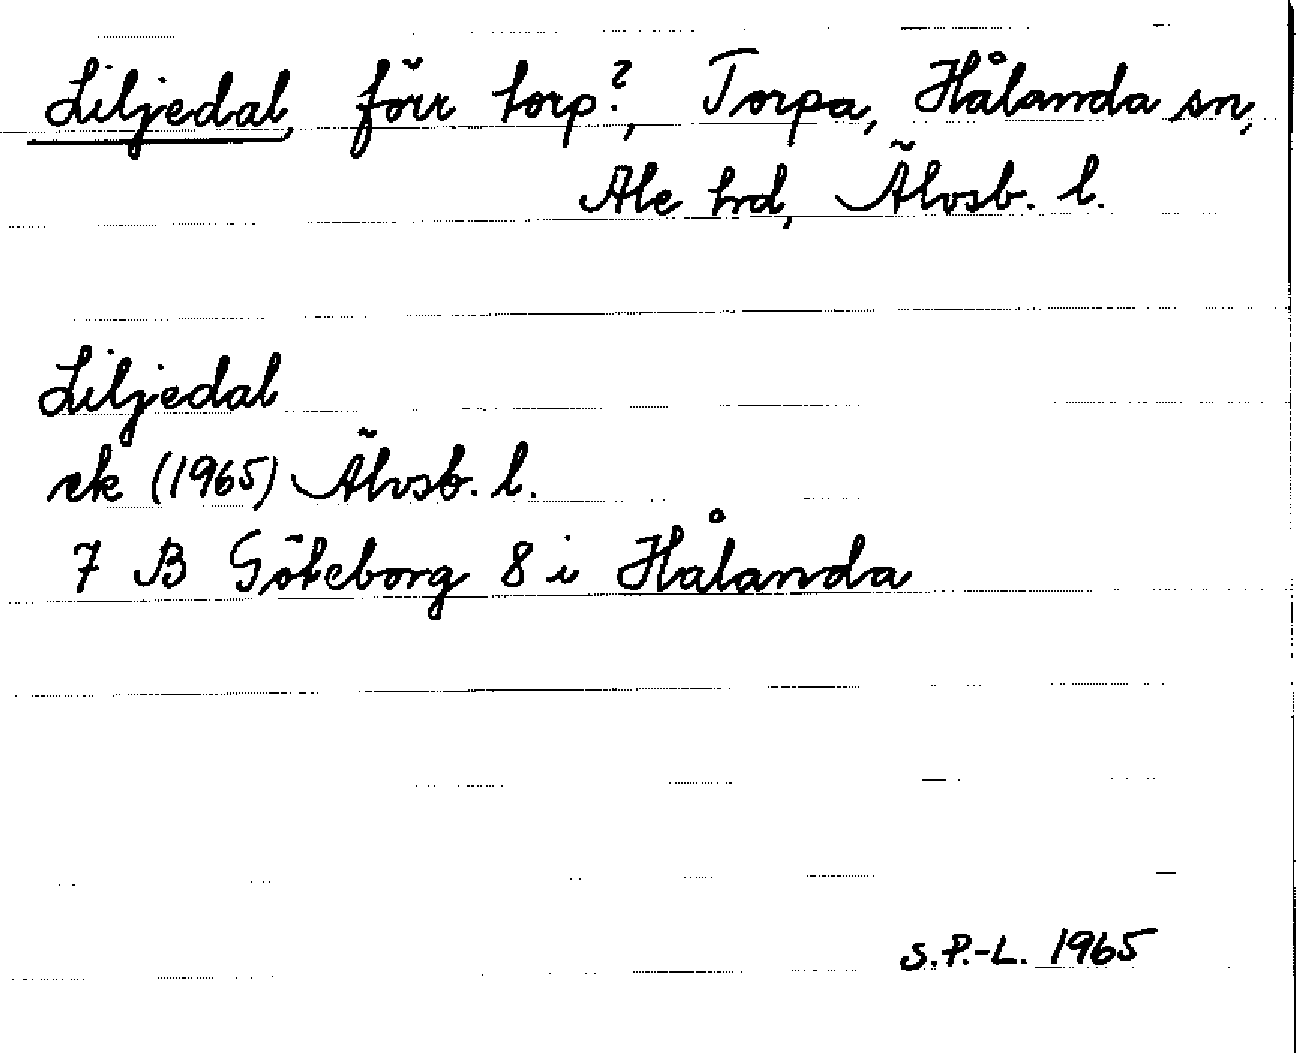 Liljedal, förr torp?, Torpa, Hålanda sn,
Ale hd, Älvsb. l.
Liljedal
ek (1965) Älvsb. l.
7 B Göteborg 8 i Hålanda
S.P.-L. 1965